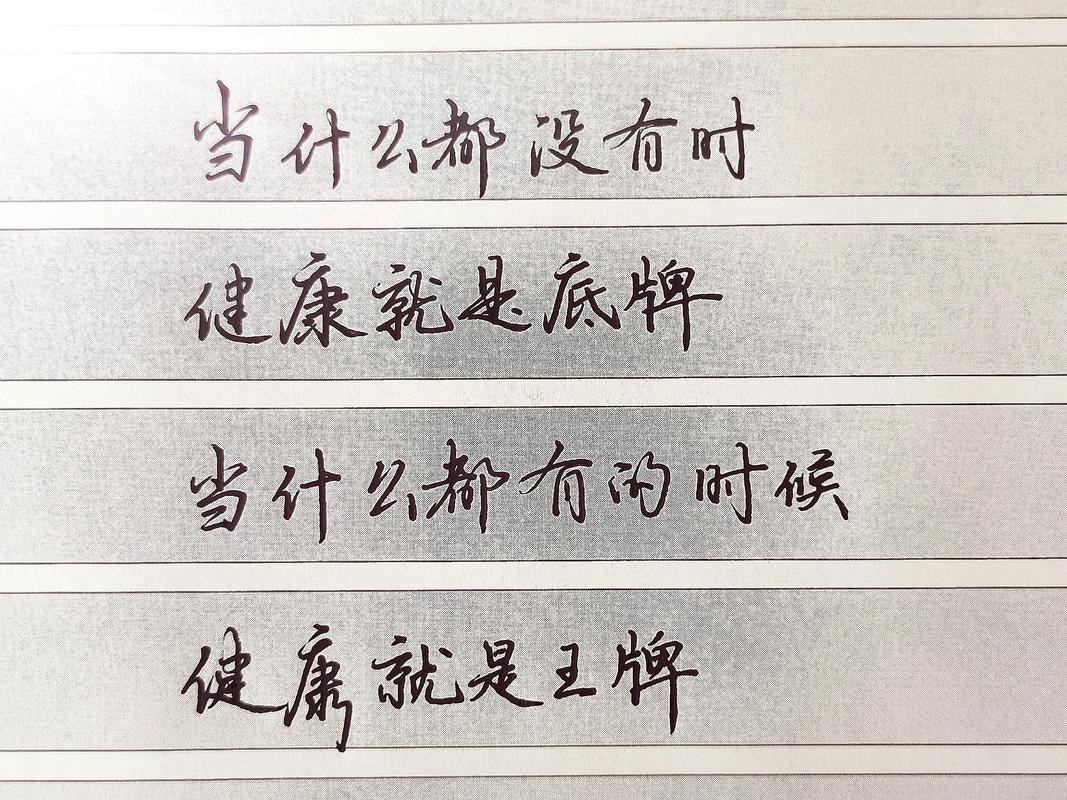 当什么都没有时
健康就是底牌
当什么都有的时候
健康就是王牌